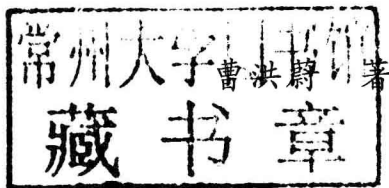 常州大学图书馆
曹洪蔚 著
藏书章